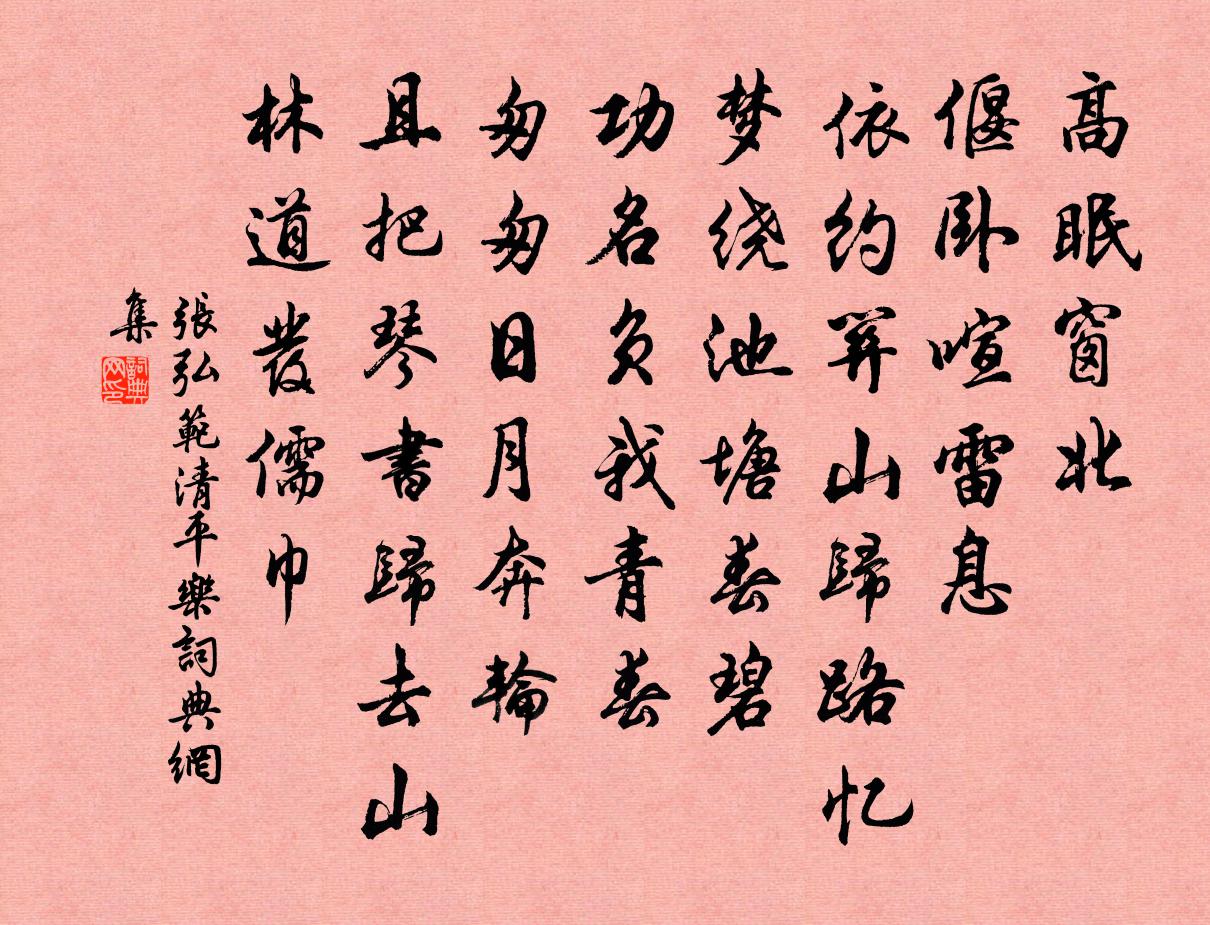 高眠窗北
偃卧喧雷息
依约箕山歸路忆
梦绕池塘春碧
功名负我青春
匆匆日月奔輪
且把琴書歸去山
林道發儒巾
張弘範清平樂詞典網
集
詞典网印